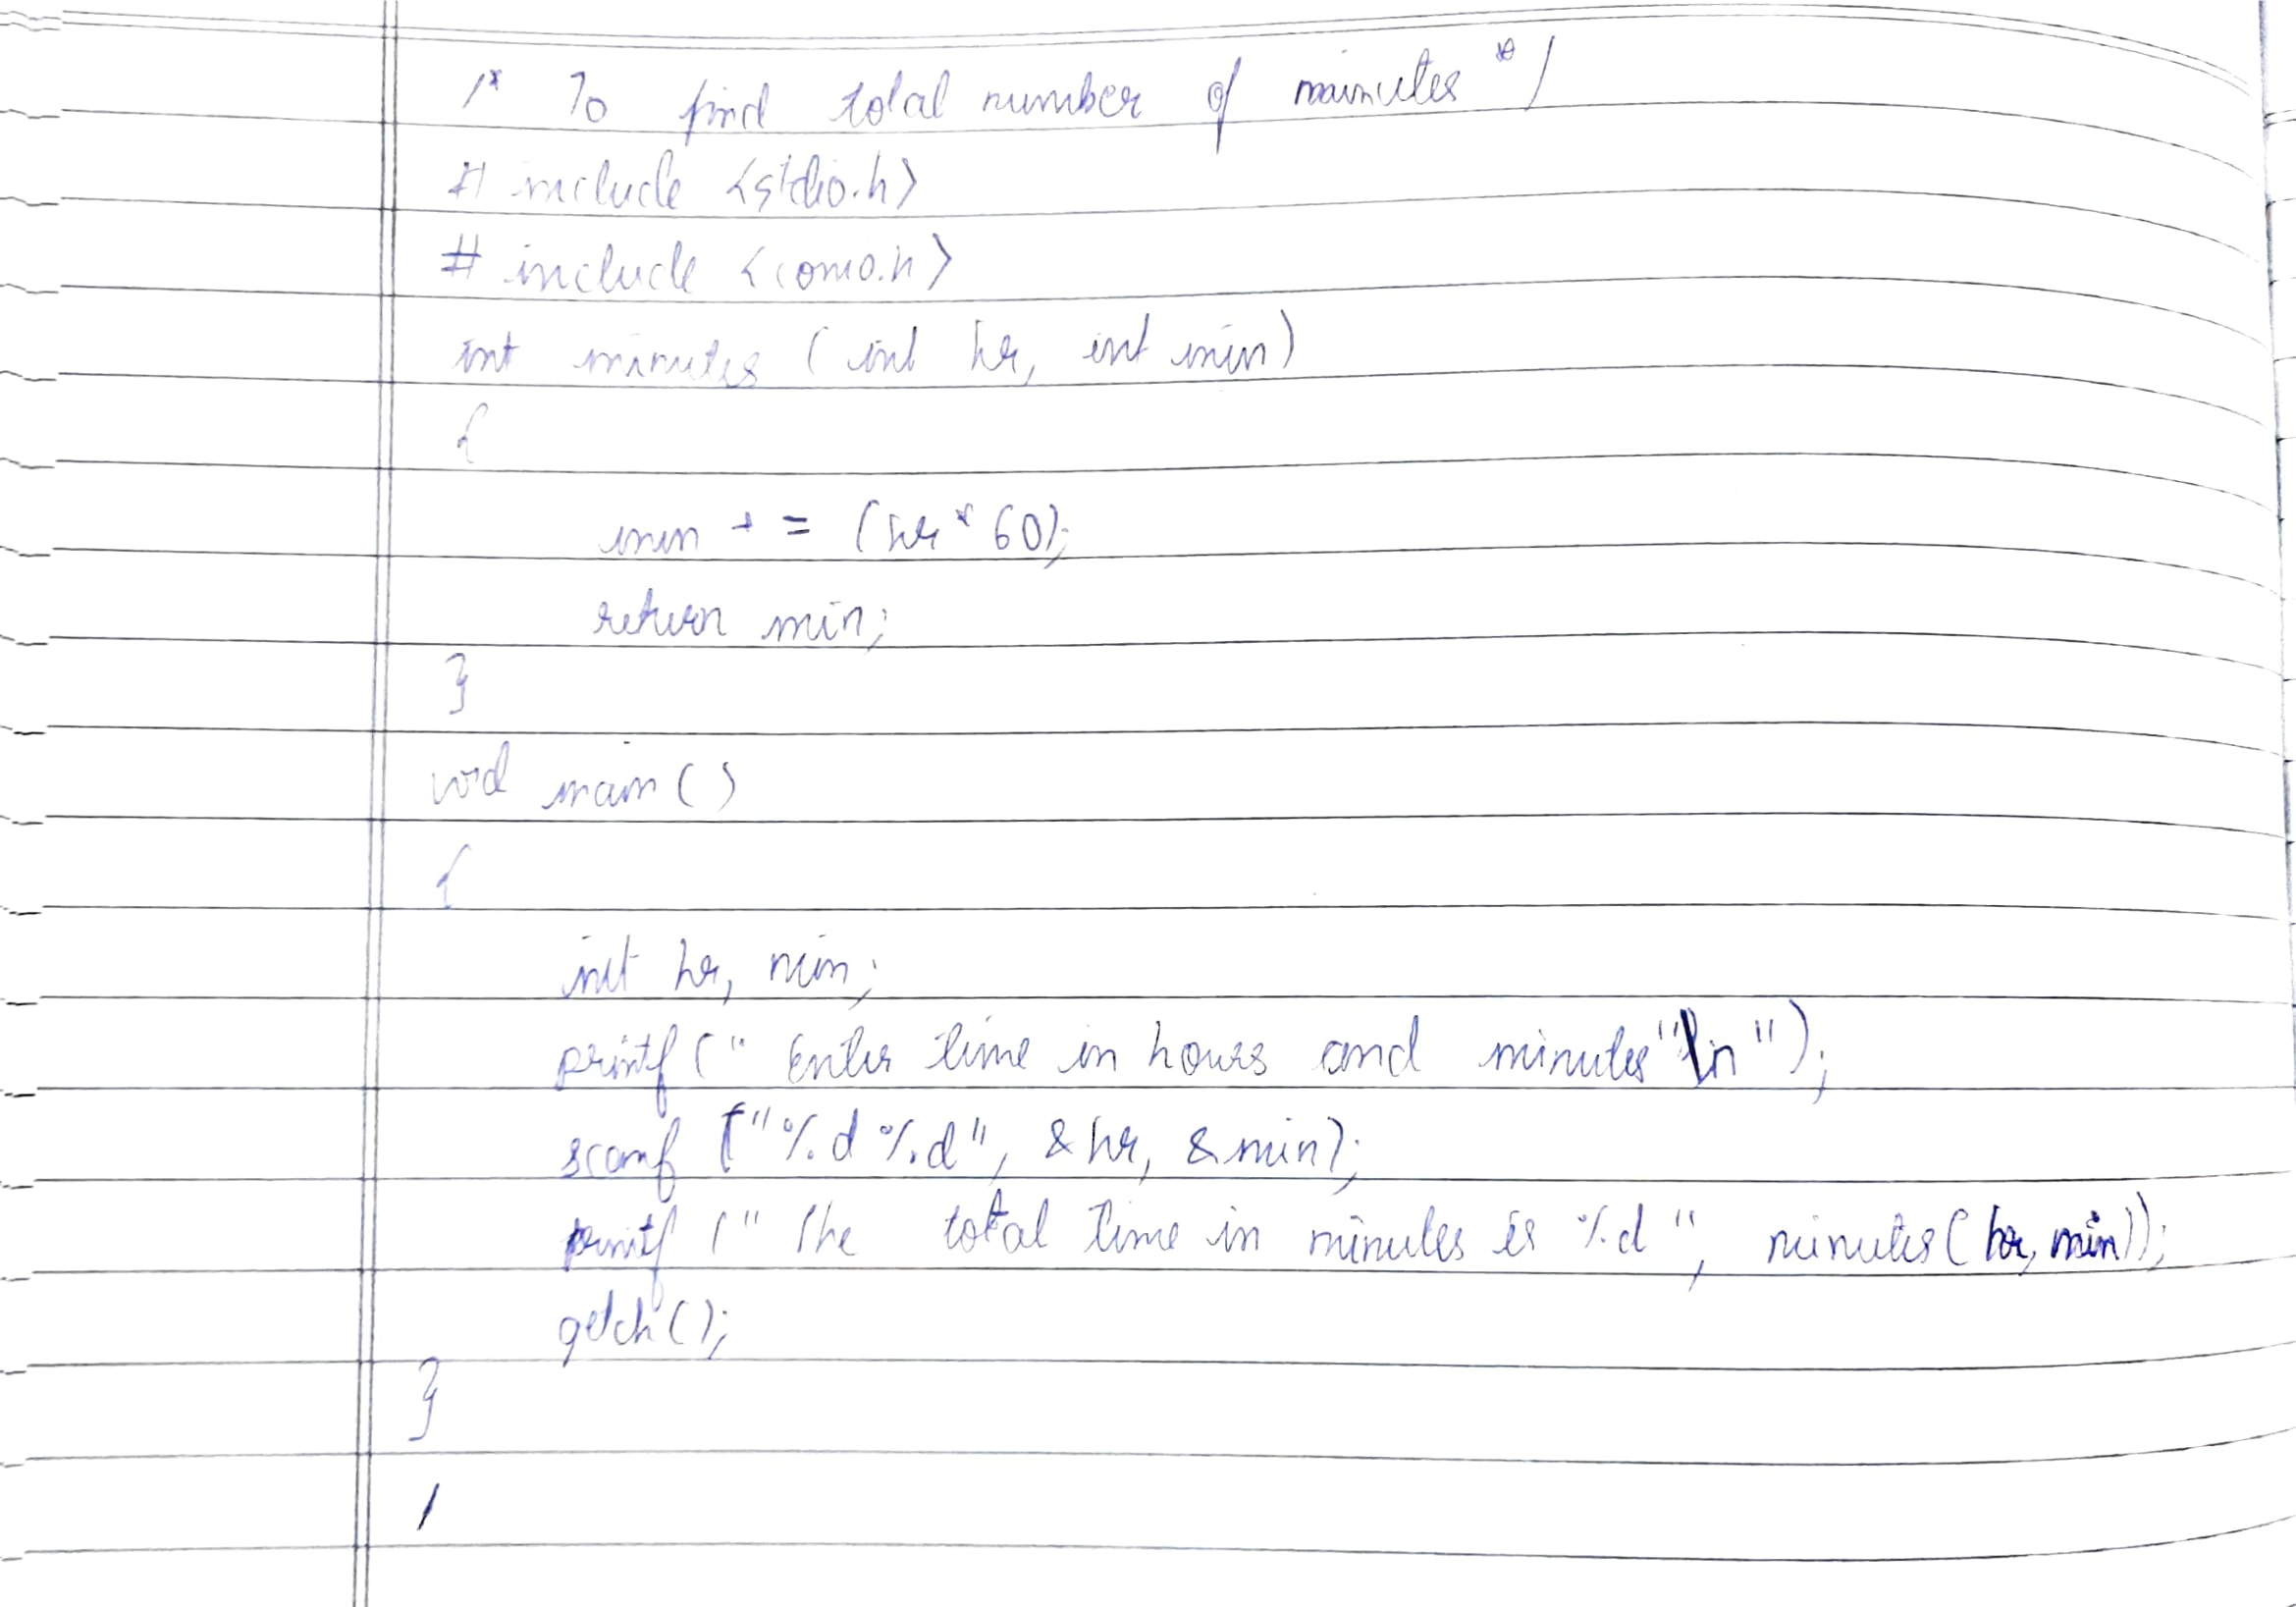 /* To find total number of minutes */
# include <stdio.h>
# include <conio.h>
int minutes ( int hr, int min)
{
min + = (hr * 60);
return min;
}
void main ( )
{
int hr, min;
printf (" Enter time in hours and minutes"\n ");
scanf ("%d %d", &hr, &min);
printf (" The total time in minutes is %d ", minutes( hr, min));
getch ( );
}
/